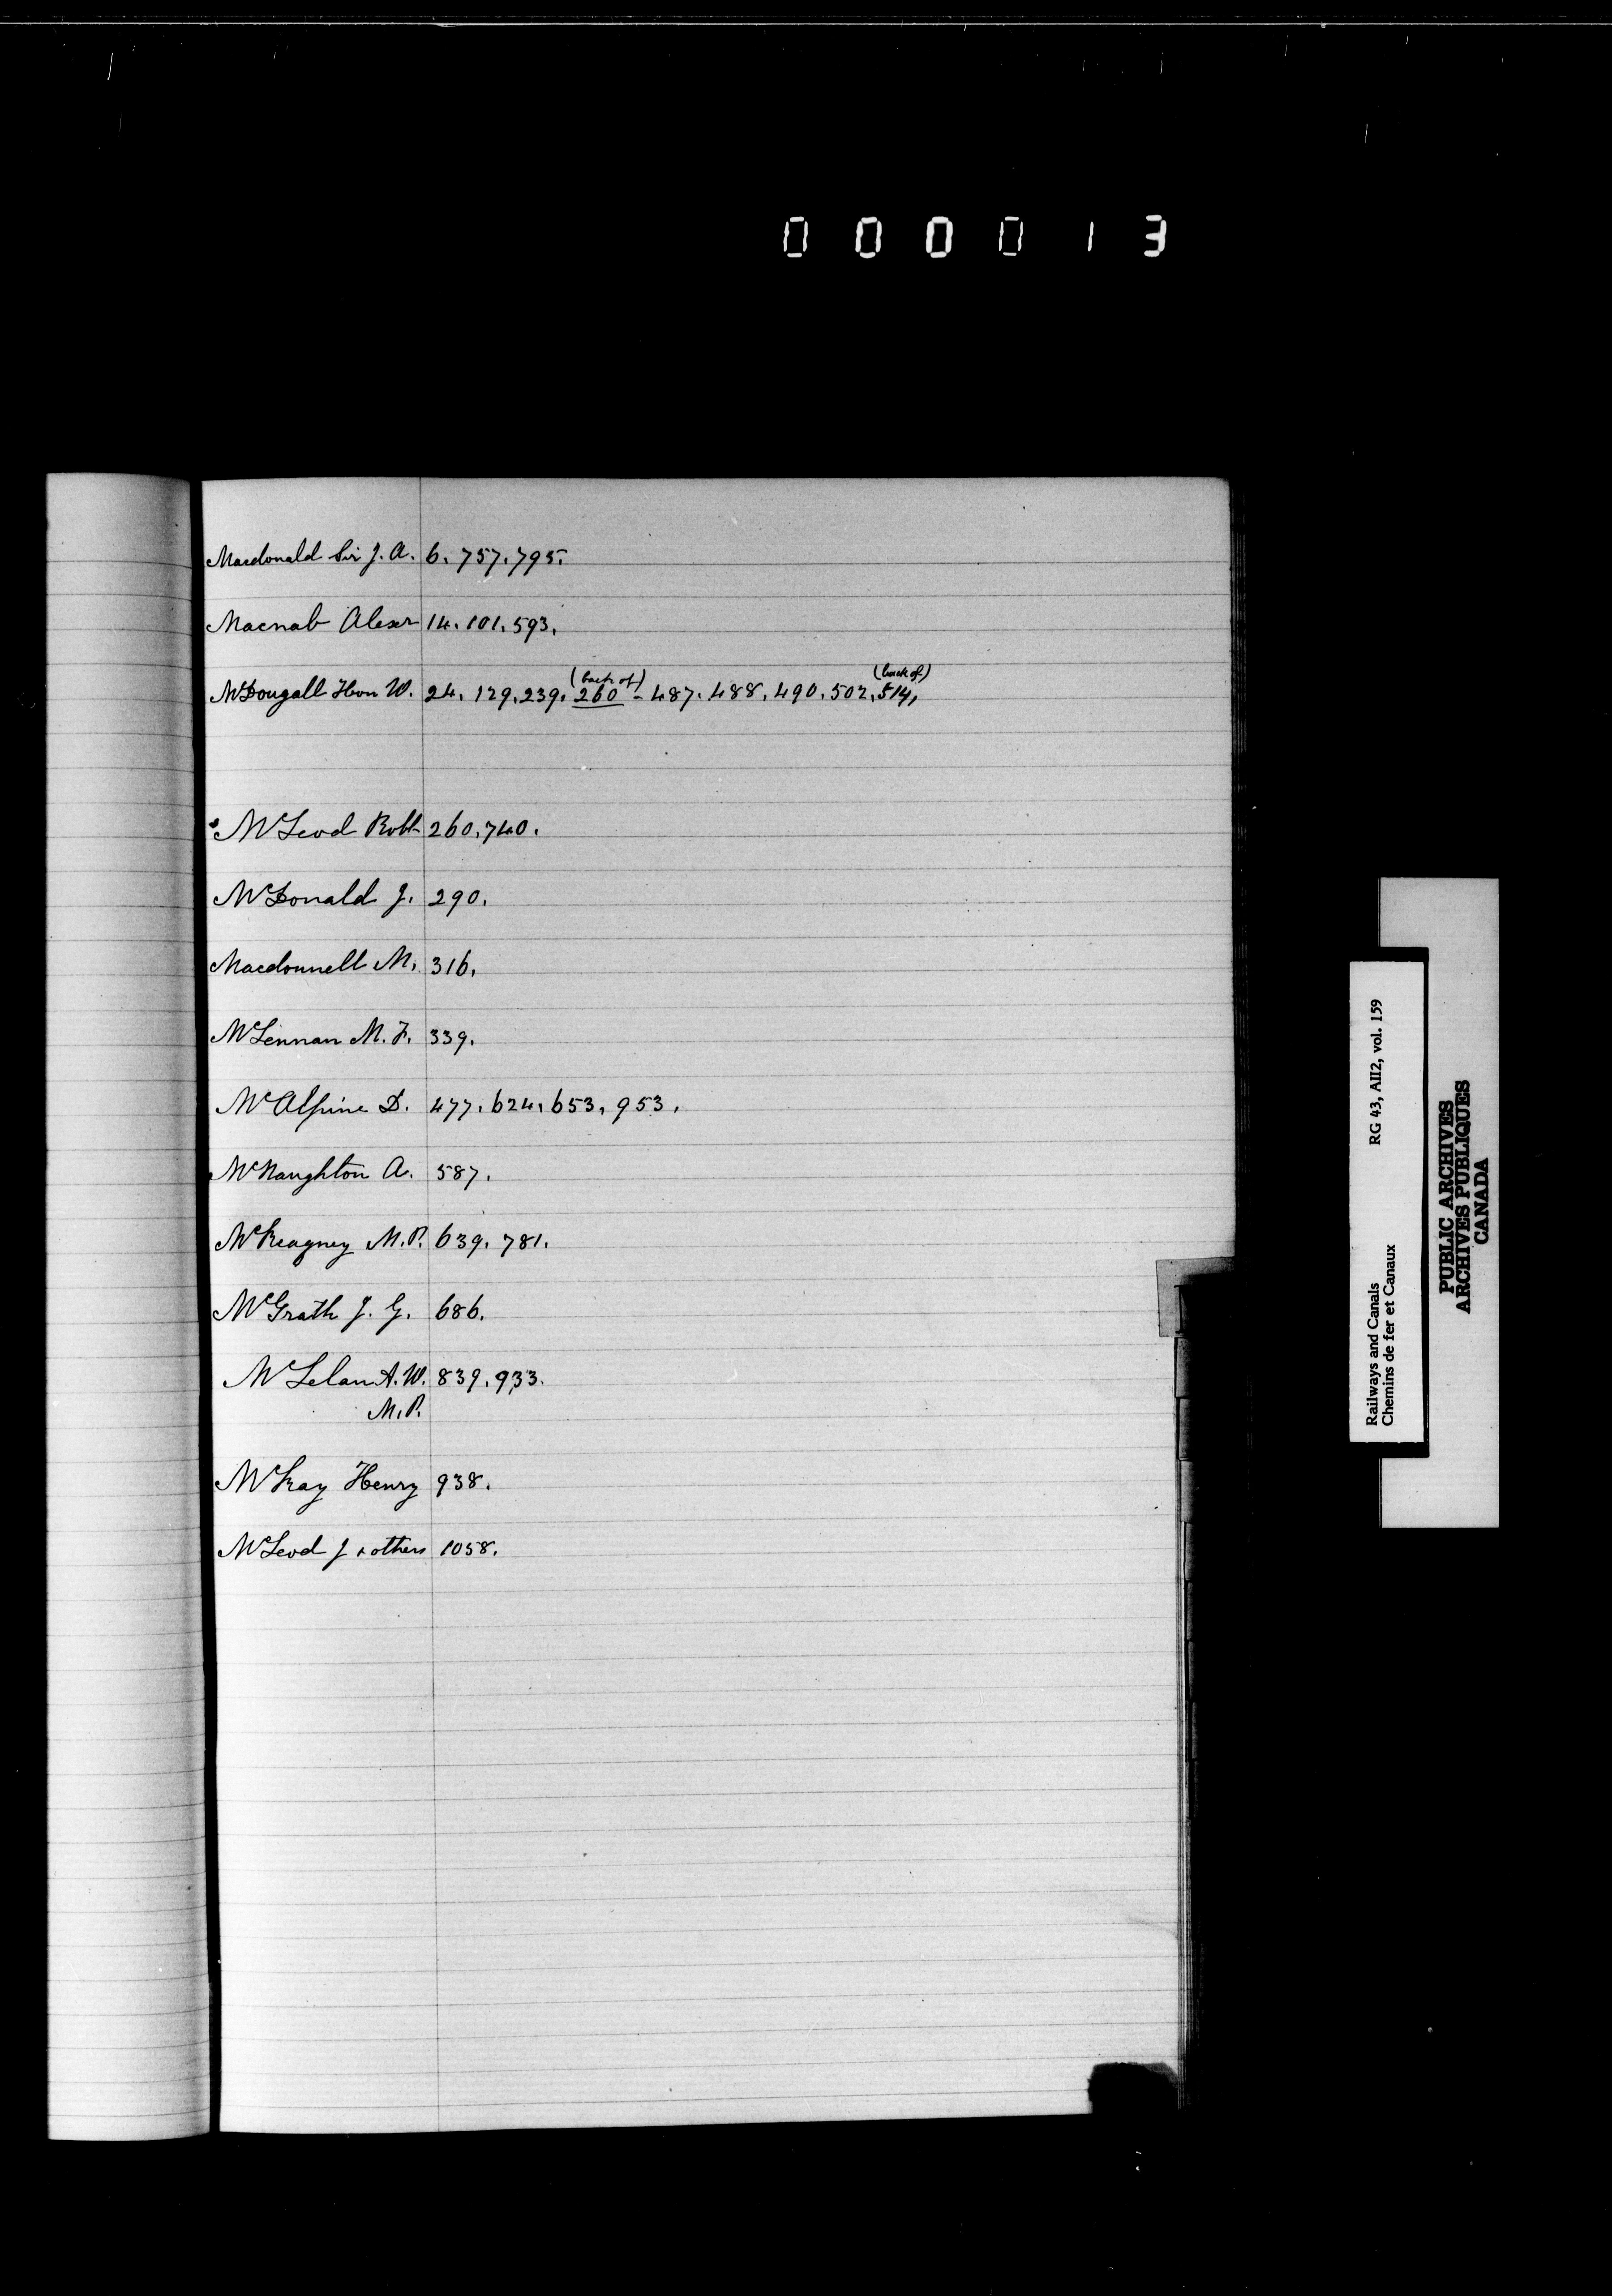 000013
Macdonald Sir J. A. 6. 757. 795.
Macnab Alexr 14. 101. 593.
(back of) (back of)
McDougall Hon W. 24. 129. 239. 260 - 487. 488. 490. 502. 514,
McLeod Robt 260. 740.
McDonald J. 290.
Macdonnell M. 316.
McLennan M. F. 339.
McAlpine D. 477. 624. 653. 953.
McNaughton A. 587.
McKeagney M.P. 639. 781.
McGrath J. G. 686.
McLelan A. W. 839. 933.
M.P.
McKay Henry 938.
McLeod J & others 1058.
Railways and Canals RG 43, AII2, vol. 159
Chemins de fer et Canaux
PUBLIC ARCHIVES
ARCHIVES PUBLIQUES
CANADA